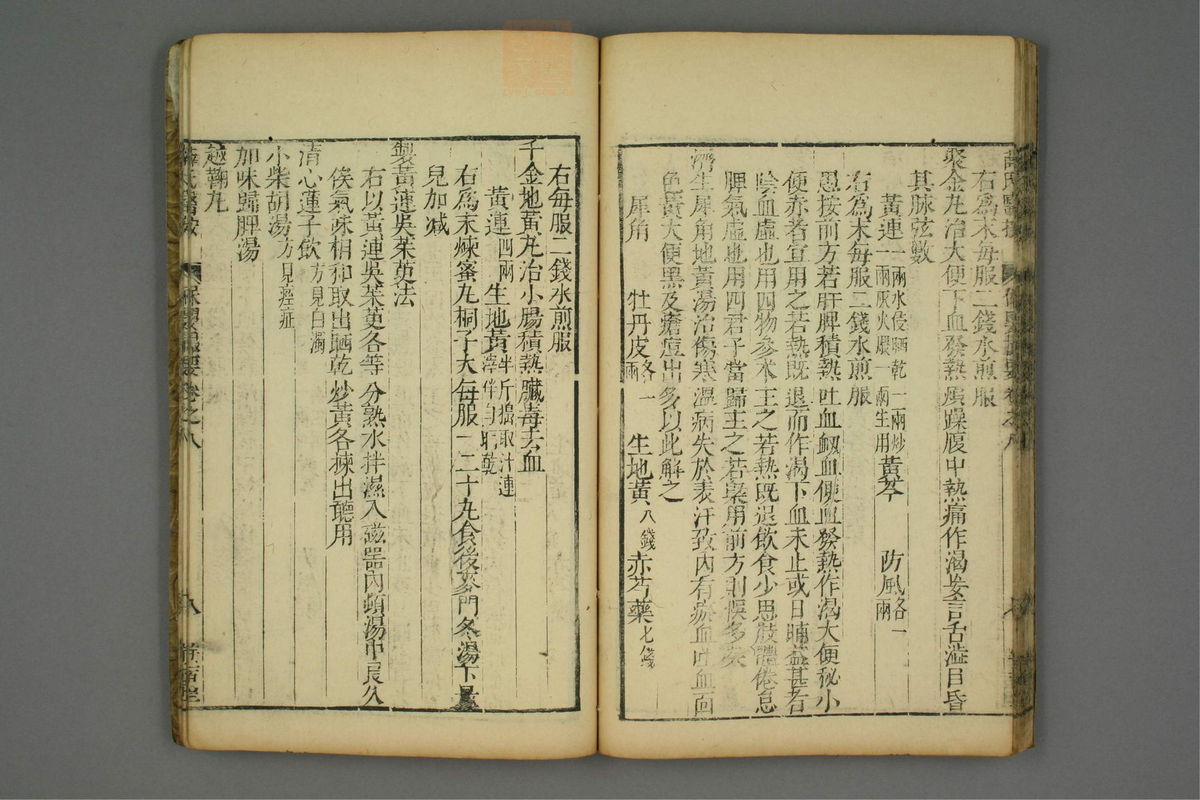 右爲末每服二錢水煎服
聚金丸治大便下血發熱煩躁腹中熱痛作渴妄言舌澁目昏
其脉弦數
黃連一兩水浸晒乾一兩炒一兩灰火煨一兩生用 黃芩 防風各一兩
右爲末每服二錢水煎服
愚按前方若肝脾積熱吐血衂血便血發熱作渴大便秘小
便赤者宜用之若熱既退而作渴下血未止或日晡益甚者
陰血虛也用四物參朮主之若熱既退飲食少思肢體倦怠
脾氣虛也用四君子當歸主之若槩用前方則悞多矣
濟生犀角地黃湯治傷寒溫病失於表汗致內有瘀血吐血面
色黃大便黑及瘡痘出多以此解之
犀角 牡丹皮各一兩 生地黃八錢 赤芍藥七錢
右每服二錢水煎服
千金地黃丸治小腸積熱臟毒去血
黃連四兩 生地黃半斤搗取汁連滓伴勻晒乾
右爲末煉蜜丸桐子大每服一二十丸食後麥門冬湯下量
兒加減
製黃連吳茱萸法
右以黃連吳茱萸各等分熟水拌濕入磁器內頓湯中良久
俟氣疎相和取出晒乾炒黃各棟出聽用
清心蓮子飲方見白濁
小柴胡湯方見痙症
加味歸脾湯
越鞠丸
薛氏醫按 保嬰撮要 卷之八 八